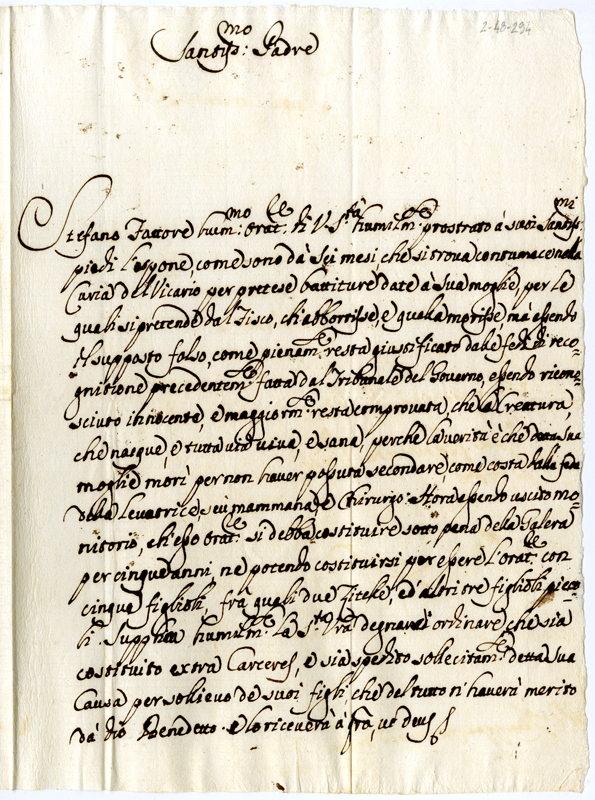 2-48-294
Santiss:mo Padre
Stefano Fattore hum:mo orat:le di V. S.tà humilm:te prostrato à suoi Santiss:mi
piedi l'espone, come sono dà Sei mesi che si trova contumace nella
Curia del Vicario per pretese battiture date à sua moglie, per le
quali si pretende dal Fisco, ch'abbortisse, e quella morisse, ma essendo
Il supposto falso, come pienam:te resta giustificato dalle fedi di reco=
gnitione precedentem:te fatta dal Tribunale del Governo, essendo ricono=
sciuto innocente, e maggiorm:te resta comprovata, che la Creatura,
che nasque, è tutta via viva, e sana, perche la verità è che detta sua
moglie morì per non haver possuta secondare, come costa dalla fede
della Levatrice, seù mammana, e Chirurgo. Hora essendo uscito mo=
nitorio, ch'esso orat:le si debba costituire sotto pena della Galera
per cinque anni, ne potendo costituirsi per essere l'orat:le con
cinque figlioli, frà quali due Zitelle, ed altri tre figlioli picco=
li. Supplica humilm:te la S.tà V'ra degnarsi ordinare che sia
costituito extra Carceres, e sia spedito sollecitam:te detta sua
Causa per sollievo de suoi figli, che del tutto n'haverà merito
dà Dio Benedetto. e lo riceverà à grã, ut deus